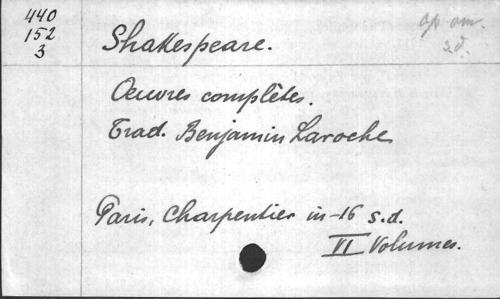 440
152
3
op om.
s.d.
Shakespeare.
Oeuvres complètes.
Trad. Benjamin Laroche
Paris, Charpentier in-16 s.d.
VI Volumes.